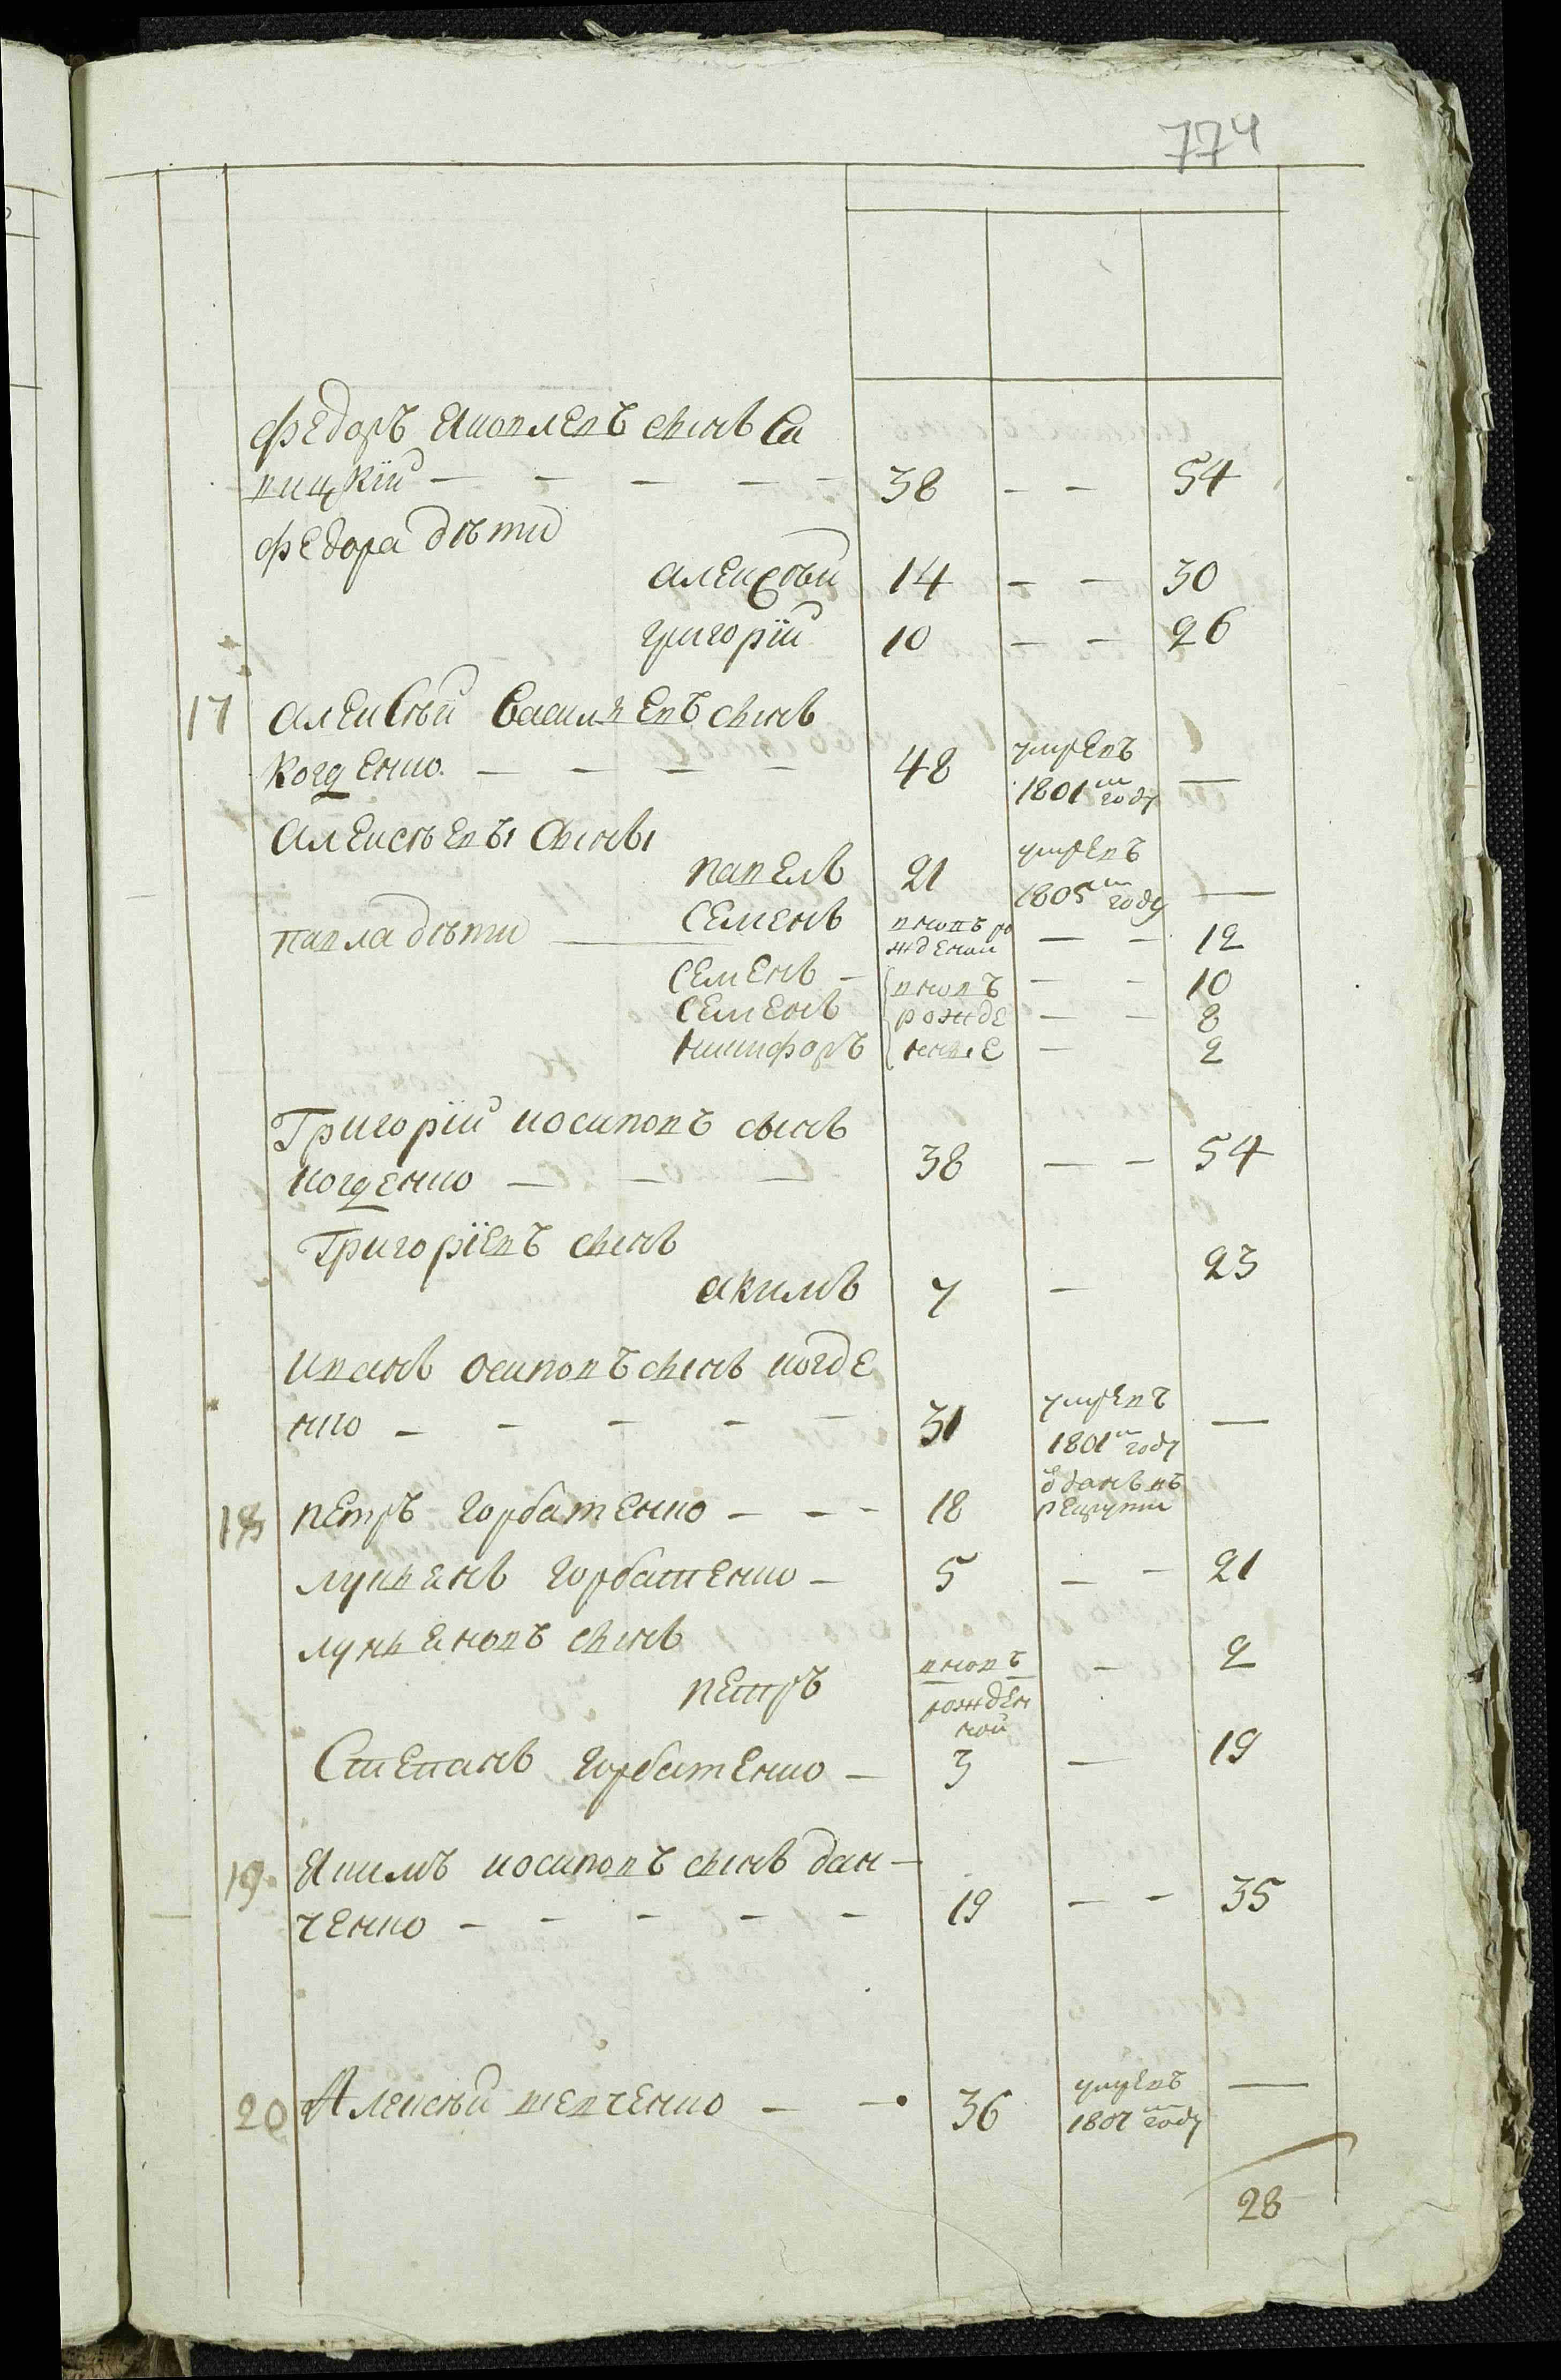 774
Федоръ Яковлевъ сынъ Са
вицкій — — — — — 38 — — 54
Федора дѣти
Алексѣй 14 — — 30
Григорій 10 — — 26
17 Алексѣй Васильевъ сынъ
Когденко — — — — 48 умревъ 1801м году —
Алексѣевы сыны
Павелъ 21 умревъ 1805м году —
Павла дѣти — Семенъ вновь рожденой — — 12
Семенъ — вновь — — 10
Семенъ рожде — — 8
Никифоръ нные — 2
Григорій Иосиповъ сынъ
Когденко — — — 38 — — 54
Григоріевъ сынъ
Акимъ 7 — 23
Иванъ Осиповъ сынъ Когде
нко — — — — — 31 умревъ 1801м году —
18 Петръ Горбатенко — — — 18 отданъ въ рекруты
Лукьянъ Горбатенко — 5 — — 21
Лукьяновъ сынъ
Петръ вновь рожденной — 2
Степанъ Горбатенко — 3 — 19
19. Якимъ Иосиповъ сынъ Дан—
ченко — — — — — 19 — — 35
20 Алексѣй Шевченко — — 36 умревъ 1801м году —
28